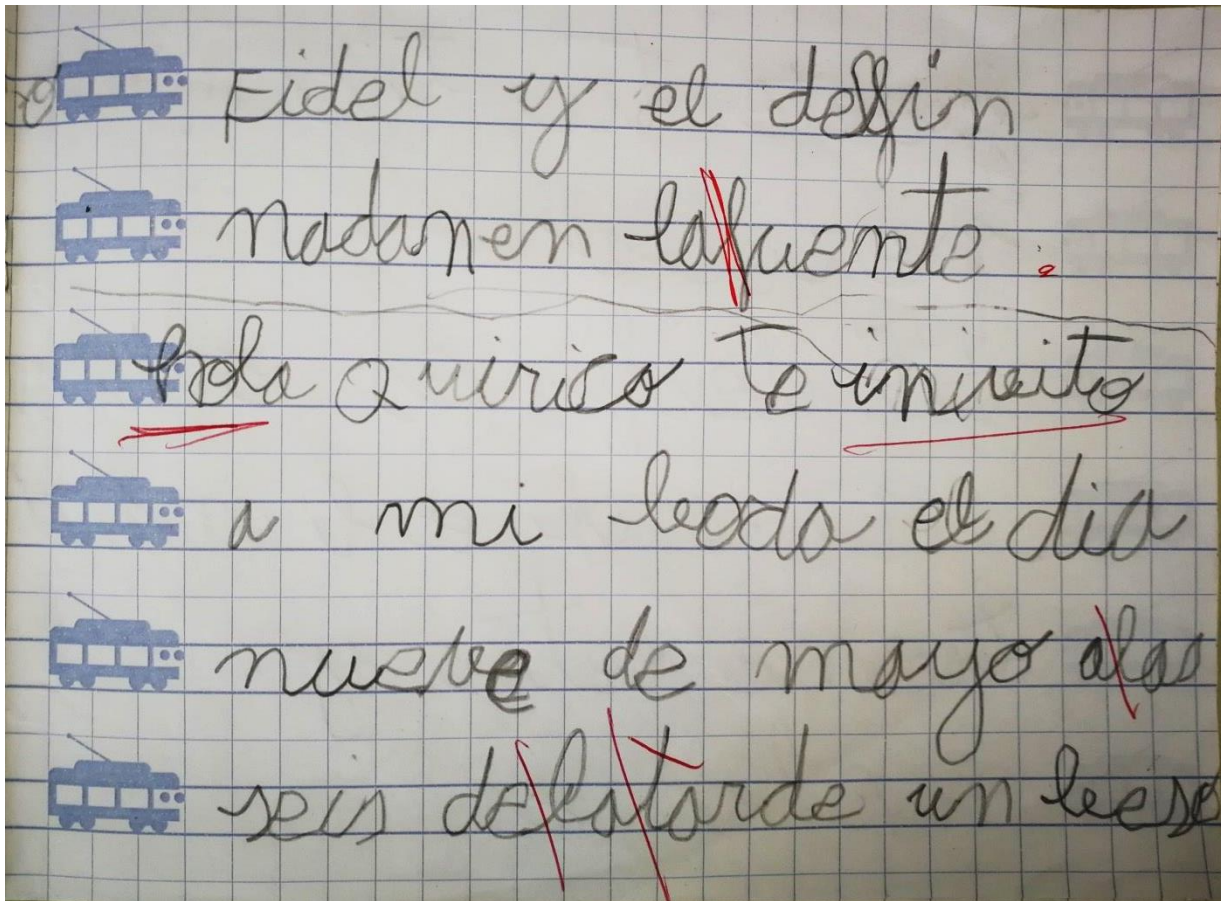 Fidel y el delfin
nadan en lafuente.
hola Quirico te inivito
a mi boda el dia
nueve de mayo alas
seis delatarde un beso